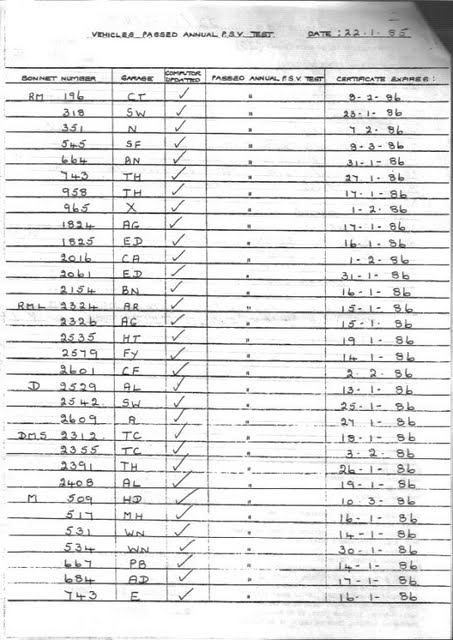 VEHICLES PASSED ANNUAL P.S.V TEST DATE : 22.1.85
BONNET NUMBER GARAGE COMPUTOR UPDATED PASSED ANNUAL P.S.V. TEST CERTIFICATE EXPIRES :
RM 196 CT ✓ " 8-2-86
318 SW ✓ " 23-1-86
351 N ✓ " 7.2.86
545 SF ✓ " 8-3-86
664 BN ✓ " 31-1-86
743 TH ✓ " 27.1.86
958 TH ✓ " 17-1-86
965 X ✓ " 1-2.86
1824 AG ✓ " 17-1-86
1825 ED ✓ " 16.1.86
2016 CA ✓ " 1-2.86
2061 ED ✓ " 31-1-86
2154 BN ✓ " 16-1-86
RML 2324 AR ✓ " 15-1-86
2326 AG ✓ " 15-1.86
2535 HT ✓ " 19.1.86
2579 FY ✓ " 14.1-86
2601 CF ✓ " 2.2.86
D 2529 AL ✓ " 13-1-86
2542 SW ✓ " 25-1-86
2609 A ✓ " 27.1-86
DMS 2312 TC ✓ " 18-1-86
2355 TC ✓ " 3-2.86
2391 TH ✓ " 26-1-86
2408 AL ✓ " 19-1-86
M 509 HD ✓ " 10.3-86
517 MH ✓ " 16-1-86
531 WN ✓ " 14-1-86
534 WN ✓ " 30-1-86
667 PB ✓ " 14-1-86
684 AD ✓ " 17-1-86
743 E ✓ " 16.1-86